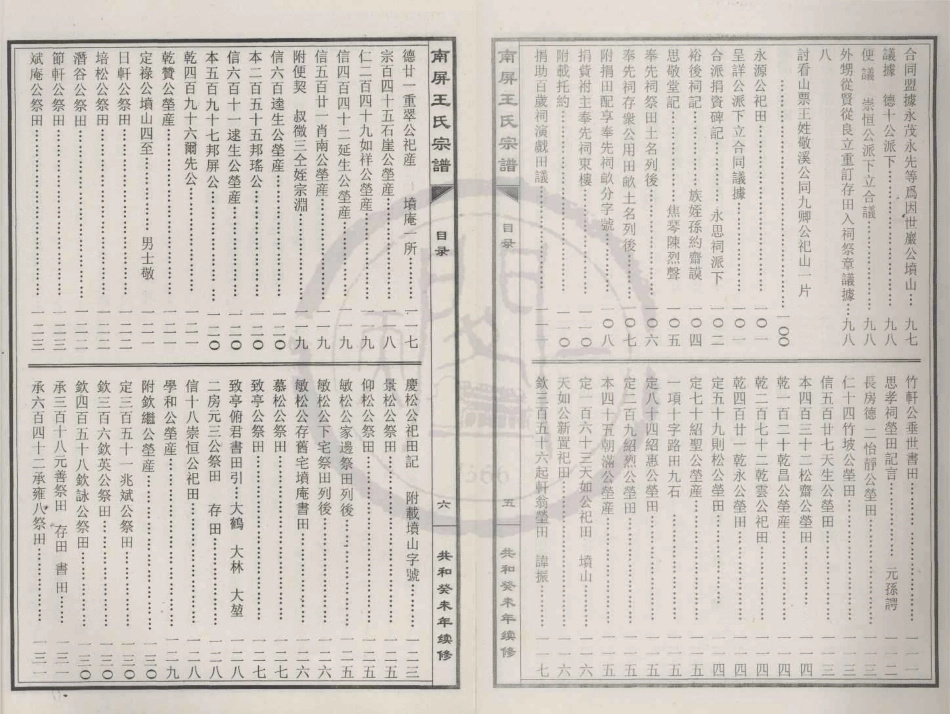 合同盟據永茂永先等爲因世巖公墳山 九七
議據 德十公派下議據 九八
便議 崇恒公派下立合議 九八
外甥從賢從良立重訂存田入祠祭章議據 九八
八
討看山票王姓敬溪公同九卿公祀山一片
一〇〇
永源公祀田 一〇一
呈詳公派下立合同議據 一〇一
合派捐資碑記 永思祠派下 一〇二
裕後祠記 族姪孫約齋謨 一〇四
思敬堂記 焦琴陳烈聲 一〇五
奉先祠祭田土名列後 一〇六
奉先祠存衆公用田畝土名列後 一〇七
附捐田配享奉先祠畝分字號 一〇八
捐貲祔主奉先祠東樓 一一〇
附載托約 一一〇
捐助百歲祠演戲田議 一一一
竹軒公垂世書田 一一二
思孝祠塋田記言 元孫謌 一一二
長房德二怡靜公塋田 一一三
仁十四竹坡公塋田 一一三
信五百廿七天生公塋田 一一三
本四百三十二松齋公塋田 一一四
乾一百二十乾昌公塋産 一一四
乾二百七十二乾雲公祀田 一一四
乾四百廿一乾永公塋田 一一四
定五十九則松公塋田 一一四
定七十紹聖公塋産 一一五
一項十字路田九石 一一五
定八十四紹惠公塋田 一一五
定二百九紹烈公塋田 一一五
本四十五朝滿公塋田 一一五
定一百六十三天如公祀田 墳山 一一六
天如公新置祀田 一一六
欽三百五十六起軒翁塋田 諱振 一一七
南屏王氏宗譜
目录
五
共和癸未年续修
南屏王氏宗譜
目录
六
共和癸未年续修
德廿一重翠公祀産 墳庵一所 一一七
宗百四十五石崖公塋産 一一八
仁二百四十九如祥公塋産 一一九
信四百四十二延生公塋産 一一九
信五百廿一肖南公塋産 一一九
附便契 叔微三仝姪宗淵 一一九
信六百逵生公塋産 一二〇
本二百五十五邦瑤公 一二〇
信六百十一逑生公塋産 一二〇
本五百九十七邦屏公 一二〇
乾四百九十六爾先公 一二一
乾贊公塋産 一二一
定祿公墳山四至 男士敬 一二一
日軒公祭田 一二二
培松公祭田 一二二
潛谷公祭田 一二二
節軒公祭田 一二三
斌庵公祭田 一二三
慶松公祀田記 附載墳山字號 一二三
景松公祭田 一二五
仰松公祭田 一二五
敏松公家邊祭田列後 一二五
敏松公下宅祭田列後 一二六
敏松公存舊宅墳庵書田 一二六
慕松公祭田 一二七
致亭公祭田 一二七
致亭俯君書田引 大鶴 大林 大堃 一二八
二房元三公祭田 存田 一二八
信十八崇恒公祀田 一二八
學和公塋産 一二九
附欽繼公塋産 一三〇
定三百五十一兆斌公祭田 一三〇
欽三百六欽英公祭田 一三〇
欽四百五十八欽詠公祭田 一三〇
承三百十八元善祭田 存田 書田 一三一
承六百四十二承雍八祭田 一三一